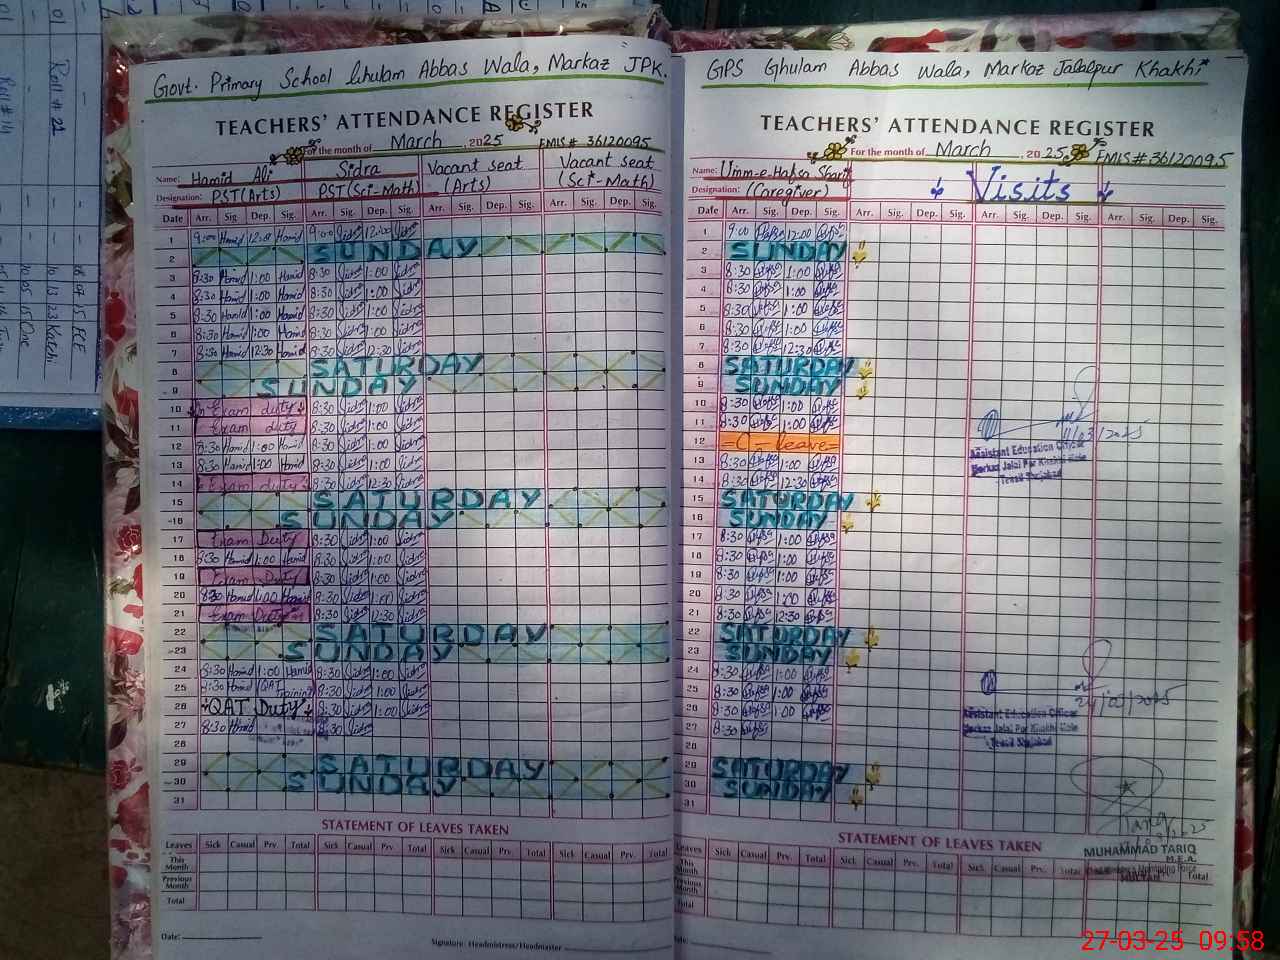 Govt. Primary School Ghulam Abbas Wala, Markaz JPK.
TEACHERS' ATTENDANCE REGISTER
For the month of March 2025 EMIS # 36120095
Name: Hamid Ali Sidra Vacant seat (Arts) Vacant seat (Sci-Math)
Designation: PST(Arts) PST(Sci-Math)
Date Arr. Sig. Dep. Sig. Arr. Sig. Dep. Sig. Arr. Sig. Dep. Sig. Arr. Sig. Dep. Sig.
1 9:00 Hamid 12:00 Hamid 9:00 Sidra 12:00 Sidra
2 SUNDAY
3 8:30 Hamid 1:00 Hamid 8:30 Sidra 1:00 Sidra
4 8:30 Hamid 1:00 Hamid 8:30 Sidra 1:00 Sidra
5 8:30 Hamid 1:00 Hamid 8:30 Sidra 1:00 Sidra
6 8:30 Hamid 1:00 Hamid 8:30 Sidra 1:00 Sidra
7 8:30 Hamid 12:30 Hamid 8:30 Sidra 12:30 Sidra
8 SATURDAY
9 SUNDAY
10 Exam duty 8:30 Sidra 1:00 Sidra
11 Exam duty 8:30 Sidra 1:00 Sidra
12 8:30 Hamid 1:00 Hamid 8:30 Sidra 1:00 Sidra
13 8:30 Hamid 1:00 Hamid 8:30 Sidra 1:00 Sidra
14 Exam duty 8:30 Sidra 12:30 Sidra
15 SATURDAY
16 SUNDAY
17 Exam Duty 8:30 Sidra 1:00 Sidra
18 8:30 Hamid 1:00 Hamid 8:30 Sidra 1:00 Sidra
19 Exam Duty 8:30 Sidra 1:00 Sidra
20 8:30 Hamid 1:00 Hamid 8:30 Sidra 1:00 Sidra
21 Exam Duty 8:30 Sidra 12:30 Sidra
22 SATURDAY
23 SUNDAY
24 8:30 Hamid 1:00 Hamid 8:30 Sidra 1:00 Sidra
25 8:30 Hamid QAT Training 8:30 Sidra 1:00 Sidra
26 QAT Duty 8:30 Sidra 1:00 Sidra
27 8:30 Hamid 8:30 Sidra
28
29 SATURDAY
30 SUNDAY
31
STATEMENT OF LEAVES TAKEN
Leaves Sick Casual Prv. Total Sick Casual Prv. Total Sick Casual Prv. Total Sick Casual Prv. Total
This Month
Previous Month
Total
Date:
Signature: Headmistress/Headmaster
GPS Ghulam Abbas Wala, Markaz Jalalpur Khakhi
TEACHERS' ATTENDANCE REGISTER
For the month of March 2025 EMIS # 36120095
Name: Umm-e-Hafsa Sharif
Designation: (Caregiver) Visits
Date Arr. Sig. Dep. Sig. Arr. Sig. Dep. Sig. Arr. Sig. Dep. Sig. Arr. Sig. Dep. Sig.
1 9:00 Hafsa 12:00 Hafsa
2 SUNDAY
3 8:30 Hafsa 1:00 Hafsa
4 8:30 Hafsa 1:00 Hafsa
5 8:30 Hafsa 1:00 Hafsa
6 8:30 Hafsa 1:00 Hafsa
7 8:30 Hafsa 12:30 Hafsa
8 SATURDAY
9 SUNDAY
10 8:30 Hafsa 1:00 Hafsa
11 8:30 Hafsa 1:00 Hafsa 11/03/2025
12 C-leave
Assistant Education Officer
Markaz Jalal Pur Khakhi Male
Tehsil Shujabad
13 8:30 Hafsa 1:00 Hafsa
14 8:30 Hafsa 12:30 Hafsa
15 SATURDAY
16 SUNDAY
17 8:30 Hafsa 1:00 Hafsa
18 8:30 Hafsa 1:00 Hafsa
19 8:30 Hafsa 1:00 Hafsa
20 8:30 Hafsa 1:00 Hafsa
21 8:30 Hafsa 12:30 Hafsa
22 SATURDAY
23 SUNDAY
24 8:30 Hafsa 1:00 Hafsa
25 8:30 Hafsa 1:00 Hafsa 24/03/2025
26 8:30 Hafsa 1:00 Hafsa
Assistant Education Officer
Markaz Jalal Pur Khakhi Male
Tehsil Shujabad
27 8:30 Hafsa
28
29 SATURDAY
30 SUNDAY
31
STATEMENT OF LEAVES TAKEN
MUHAMMAD TARIQ
M.E.A.
MULTAN
Leaves Sick Casual Prv. Total Sick Casual Prv. Total Total
This Month
Previous Month
Total
27-03-25 09:58